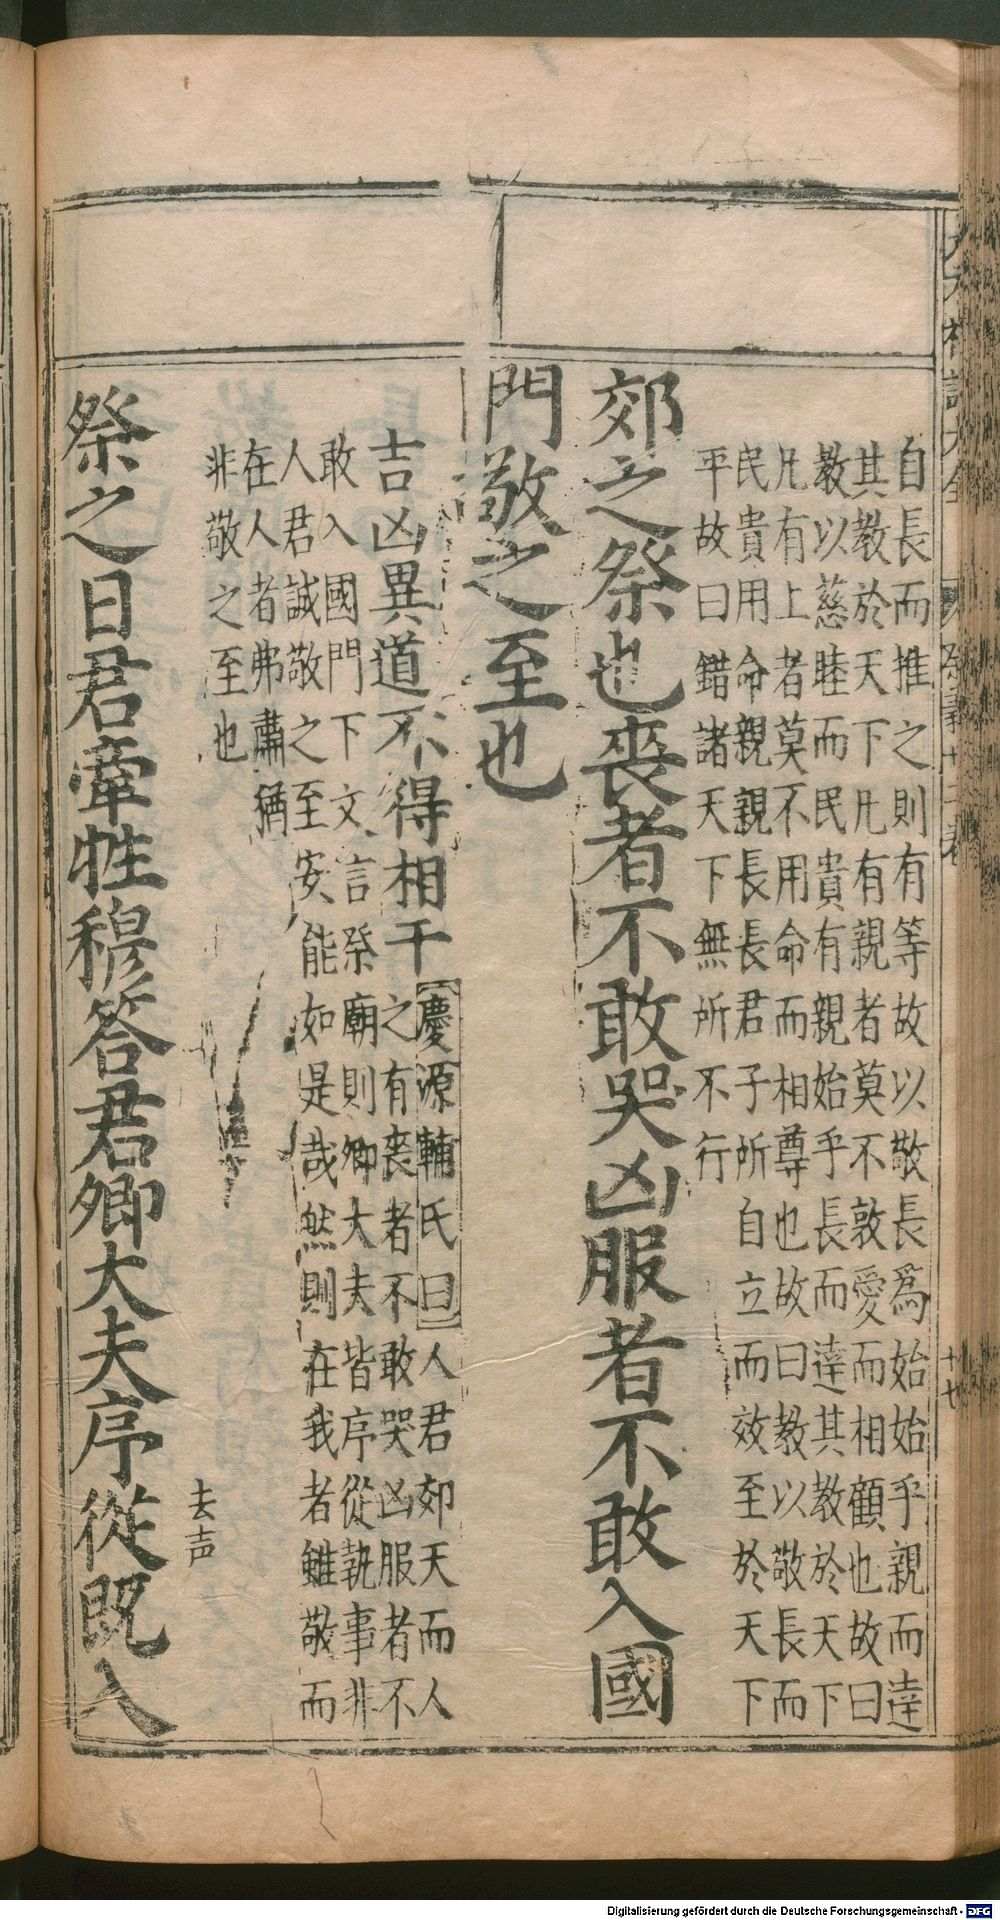 自長而推之則有等故以敬長爲始始乎親而達
其教於天下凡有親者莫不敦愛而相顧也故曰
教以慈睦而民貴有親始乎長而達其教於天下
凡有上者莫不用命而相尊也故曰教以敬長而
民貴用命親親長長君子所自立而效至於天下
平故曰錯諸天下無所不行
郊之祭也喪者不敢哭凶服者不敢入國
門敬之至也
吉凶異道不得相干慶源輔氏曰人君郊天而人
敢入國門下文言祭之有喪者不敢哭凶服者不
人君誠敬之至安能廟則卿大夫皆序從執事非
在人者弗肅猶如是哉然則在我者雖敬而
非敬之至也
去声
祭之日君牽牲穆答君卿大夫序從既入
十七
Digitalisierung gefördert durch die Deutsche Forschungsgemeinschaft - DFG